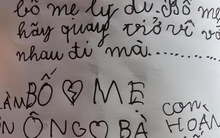 bố mẹ ly dị. Bố mẹ
hãy quay trở về vớ
nhau đi mà...........
LÀM BỐ MẸ
CON
ÔNG BÀ HOÀN